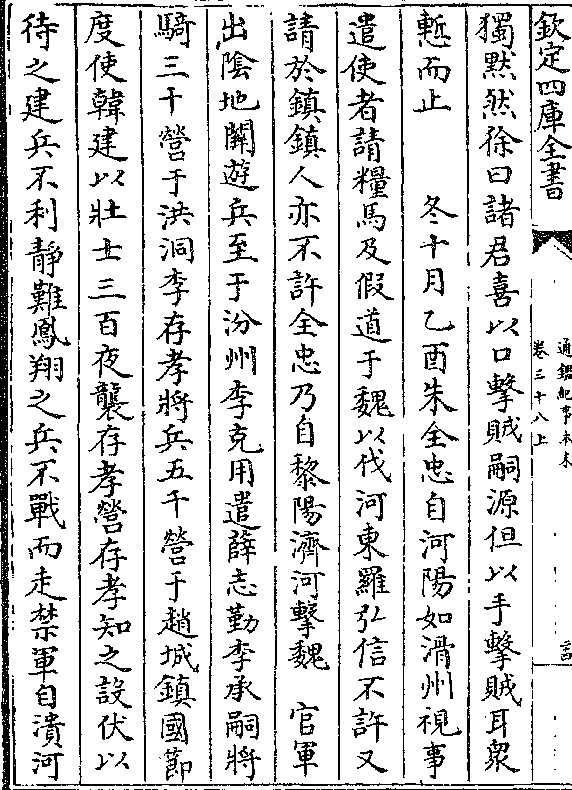 欽定四庫全書
通鑑紀事本末
卷三十八上
獨默然徐曰諸君喜以口擊賊嗣源但以手擊賊耳衆
慙而止　　冬十月乙酉朱全忠自河陽如滑州視事
遣使者請糧馬及假道于魏以伐河東羅弘信不許又
請於鎮鎮人亦不許全忠乃自黎陽濟河擊魏　官軍
出隂地關遊兵至于汾州李克用遣薛志勤李承嗣將
騎三千營于洪洞李存孝將兵五千營于趙城鎮國節
度使韓建以壯士三百夜襲存孝營存孝知之設伏以
待之建兵不利靜難鳳翔之兵不戰而走禁軍自潰河